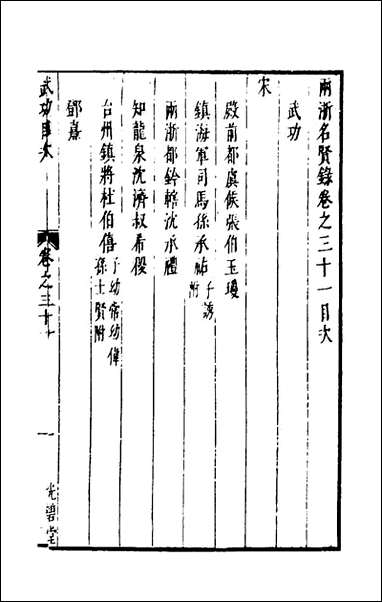 兩浙名賢錄卷之三十一目次
武功
宋
殿前都虞候張伯玉瓊
鎮海軍司馬孫承祐子誘附
兩浙都鈐轄沈承禮
知龍泉沈濟叔希稷
台州鎮將杜伯僖子幼帝幼偉孫士賢附
鄧熹
武功目次
卷之三十一
一
光碧堂